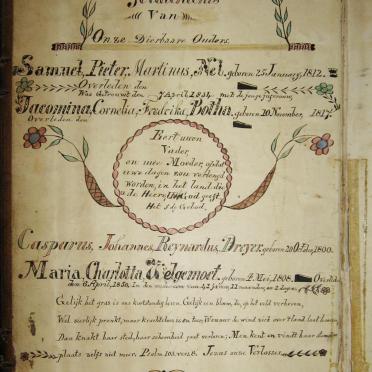 Van
Onze Dierbaare Ouders.
Samuel, Pieter, Martinus, Nel, geboren 25 January, 1812.
Overleeden den
Was Getrouwt den 7 April 1834 met de
Jacomina, Cornelia, Fredrika, Botha, geboren 10 November, 1817.
Overleeden den
Eert uwen
Vader,
en uwe Moeder, opdat
uwe dagen
worden, in het land die
u de Heere God geeft.
Het 5de Gebod.
Casparus, Johannes, Reynardus, Dreyer, geboren 28 October, 1800.
Maria, Charlotta, Welgemoet, geboren 4 Mei, 1808. Overleeden
den 6 April, 1850, In den van 41 Jaren, 11 maanden, en 2 dagen.
Gelijk het gras is ons kortstondig leven. Gelijk een bloem, die, op het veld verheven,
Wel sierlijk pronkt, maar krachteloos is en teer; Wanneer de wind zich over 't land laat hooren,
Dan knakt haar steel, haar schoonheid gaat verloren; Men kent en vindt haar
plaats zelfs niet meer. Psalm 103 vers 8. Jesus onze Verlosser.